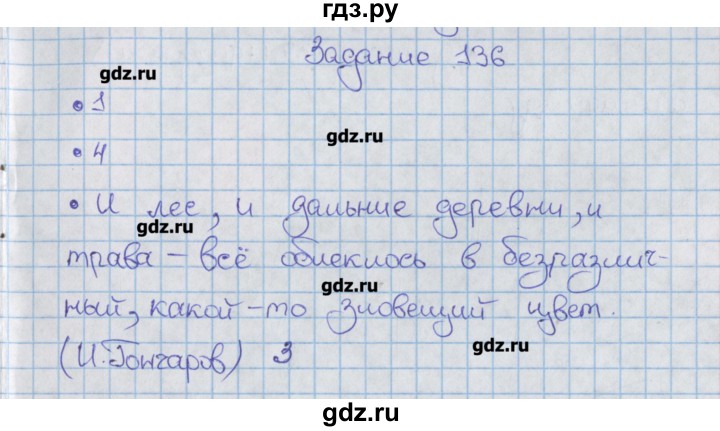 гдз.ру
Задание 136
gdz.ru
• 1
gdz.ru
• 4
• И лес, и дальние деревни, и
gdz.ru
трава – всё облеклось в безразлич-
gdz.ru
ный, какой-то зловещий цвет.
(И. Гончаров) 3
gdz.ru
gdz.ru